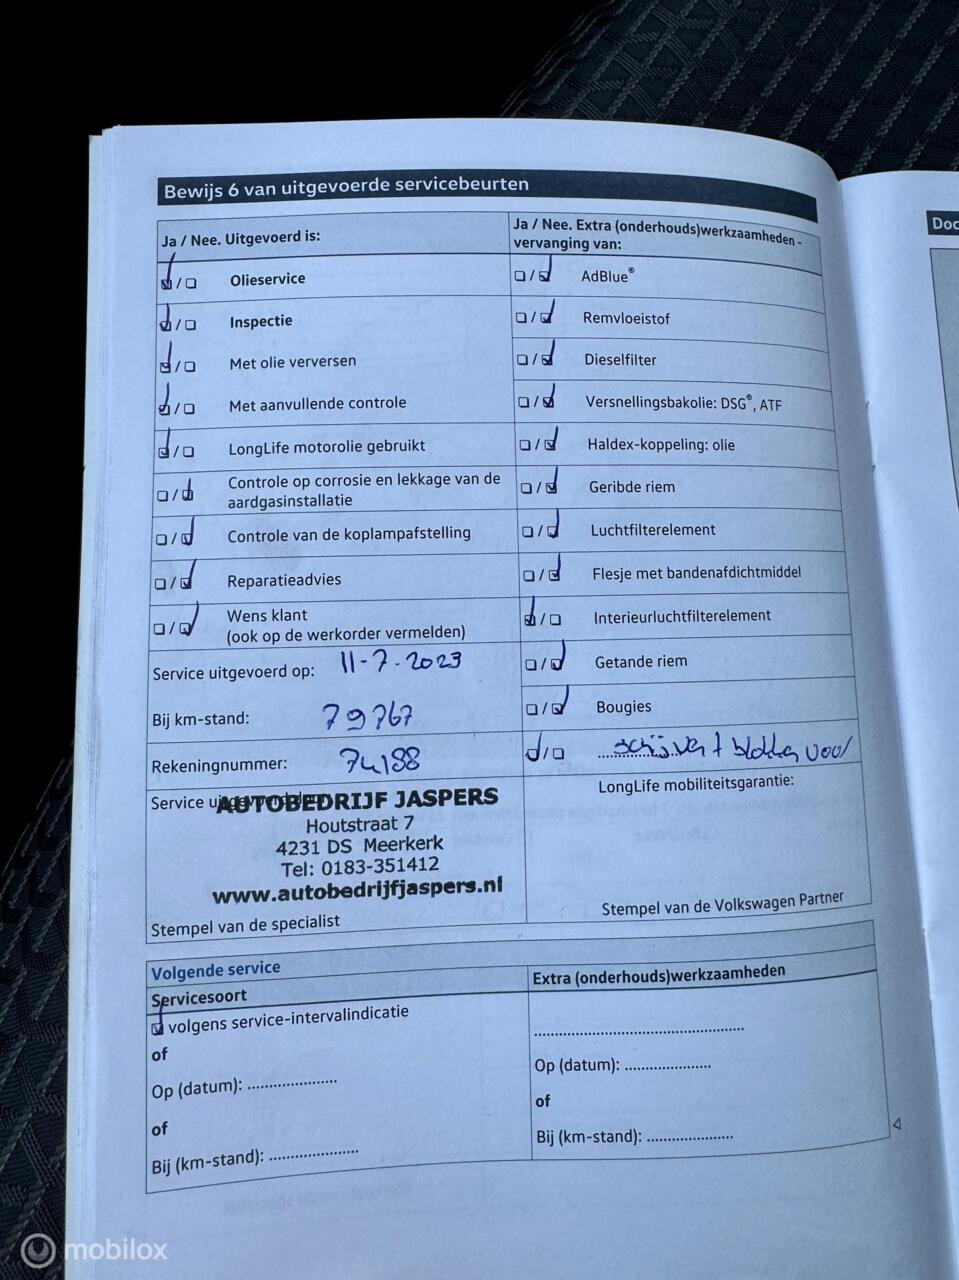 Bewijs 6 van uitgevoerde servicebeurten
Doc
Ja / Nee. Uitgevoerd is:
Ja / Nee. Extra (onderhouds)werkzaamheden -
vervanging van:
/ Olieservice
/ Inspectie
/ Met olie verversen
/ Met aanvullende controle
/ LongLife motorolie gebruikt
/ Controle op corrosie en lekkage van de
aardgasinstallatie
/ Controle van de koplampafstelling
/ Reparatieadvies
/ Wens klant
(ook op de werkorder vermelden)
/ AdBlue®
/ Remvloeistof
/ Dieselfilter
/ Versnellingsbakolie: DSG®, ATF
/ Haldex-koppeling: olie
/ Geribde riem
/ Luchtfilterelement
/ Flesje met bandenafdichtmiddel
/ Interieurluchtfilterelement
/ Getande riem
/ Bougies
/ schijven + blokken voor
Service uitgevoerd op: 11-7-2023
Bij km-stand: 79767
Rekeningnummer: 74188
Service uitgevoerd door:
AUTOBEDRIJF JASPERS
Houtstraat 7
4231 DS Meerkerk
Tel: 0183-351412
www.autobedrijfjaspers.nl
Stempel van de specialist
LongLife mobiliteitsgarantie:
Stempel van de Volkswagen Partner
Volgende service
Servicesoort
volgens service-intervalindicatie
of
Op (datum): ....................
of
Bij (km-stand): ....................
Extra (onderhouds)werkzaamheden
................................................
Op (datum): ....................
of
Bij (km-stand): ....................
mobilox